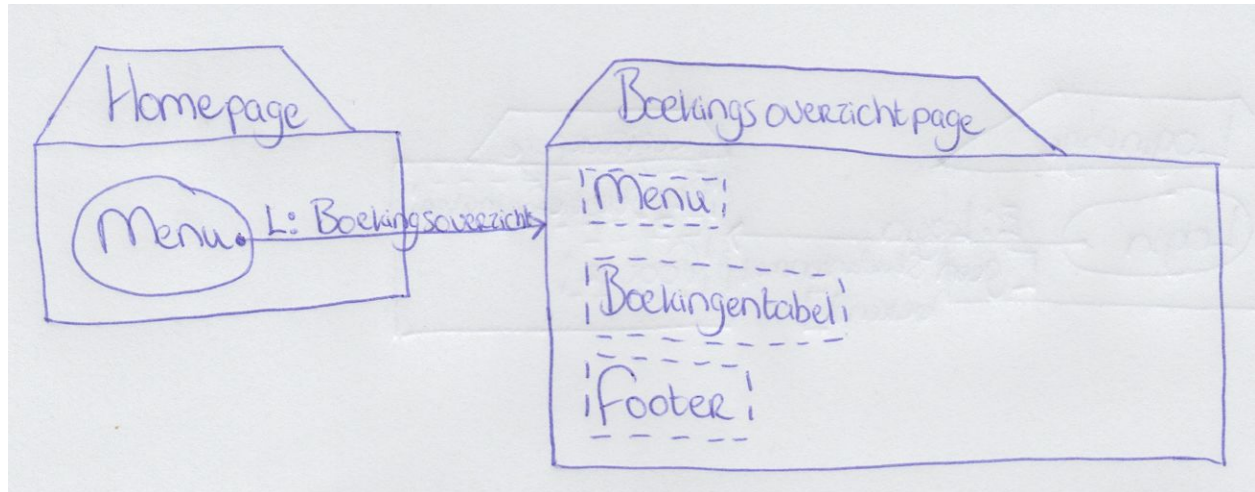 Homepage
Menu
L: Boekingsoverzicht
Boekingsoverzichtpage
Menu
Boekingentabel
Footer